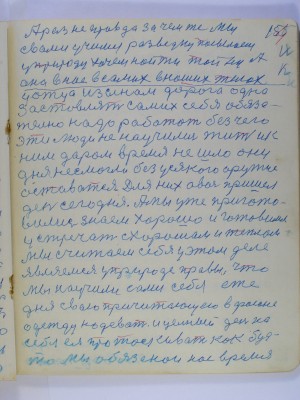 А раз не правда зачем же мы 155
с вами учимы разведку
у природу хочем найти той
она в нас в самих в наших телах
и отца и сынам дорога одна
Заставлять самих себя обяза-
тельно надо работат без чего
эти люди не научились жить их
ним даром время не шло они
дня несмогли без усякого оружие
оставатся Для них авось пришол
ден сегодня. А мы уже пригото-
вились знаем хорошо и готовимся
устречат с Хорошим и теплым
мы считаем себя у этом деле
являемся у природе правы, что
мы научили сами себя еже
дня свою причитающею в районе
одежду надеват. и целый ден на
себя ея протаскиват как буд-
то мы обязаны нас время